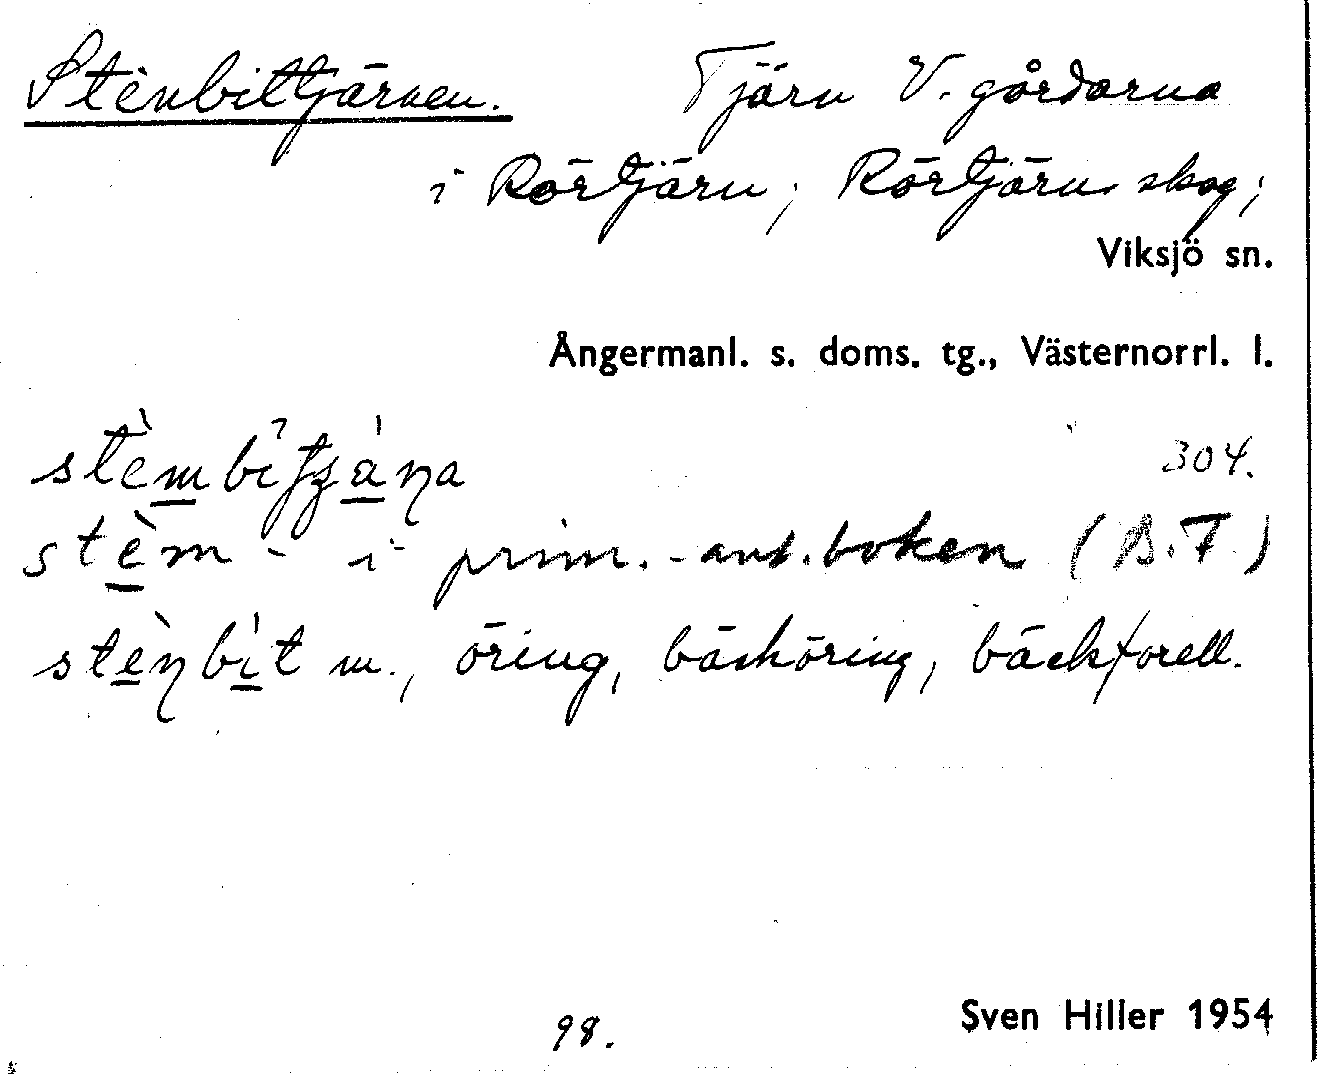 Stènbittjärnen. Tjärn V. gårdarna
i Rörtjärn; Rörtjärns skog;
Viksjö sn.
Ångermanl. s. doms. tg., Västernorrl. l.
304.
stèm - i prim.-ant.boken (B.F)
m., öring, bäcköring, bäckforell.
98. Sven Hiller 1954